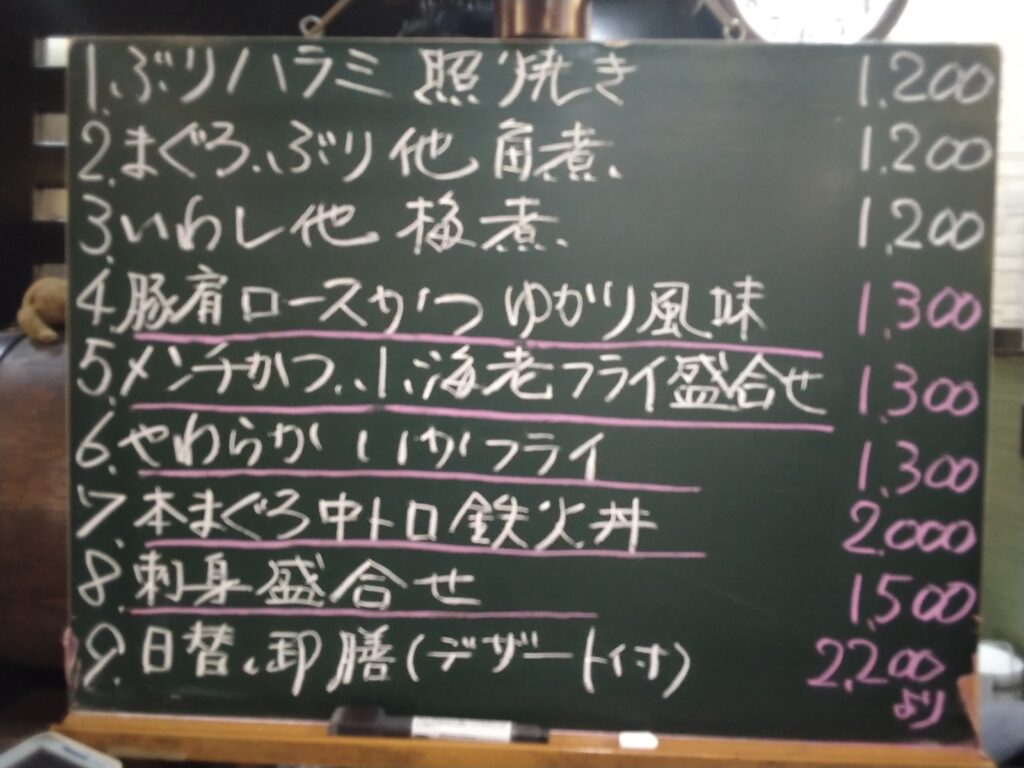 1. ぶりハラミ 照焼き 1,200
2. まぐろ、ぶり他 角煮 1,200
3. いわし他 梅煮 1,200
4. 豚肩ロースかつ ゆかり風味 1,300
5. メンチかつ、小海老フライ盛合せ 1,300
6. やわらか いかフライ 1,300
7. 本まぐろ中トロ鉄火丼 2,000
8. 刺身盛合せ 1,500
9. 日替り御膳(デザート付) 2,200
より